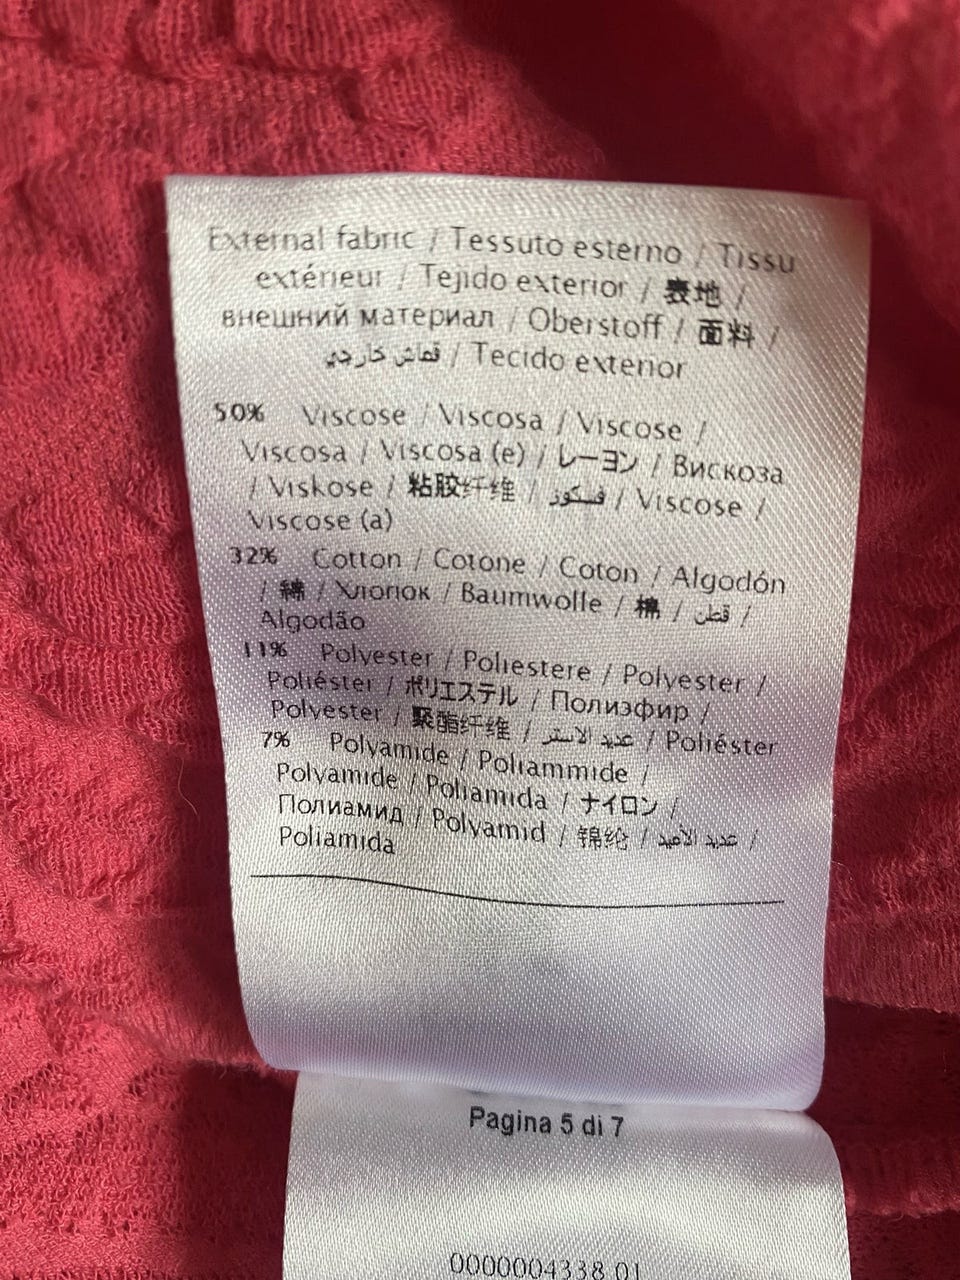 External fabric / Tessuto esterno / Tissu
extérieur / Tejido exterior / 表地 /
внешний материал / Oberstoff / 面料 /
قماش خارجي / Tecido exterior
50% Viscose / Viscosa / Viscose /
Viscosa / Viscosa (e) / レーヨン / Вискоза
/ Viskose / 粘胶纤维 / فسكوز / Viscose /
Viscose (a)
32% Cotton / Cotone / Coton / Algodón
/ 綿 / Хлопок / Baumwolle / 棉 / قطن /
Algodão
11% Polyester / Poliestere / Polyester /
Poliéster / ポリエステル / Полиэфир /
Polyester / 聚酯纤维 / عديد الاستر / Poliéster
7% Polyamide / Poliammide /
Polyamide / Poliamida / ナイロン /
Полиамид / Polyamid / 锦纶 / عديد الأميد /
Poliamida
Pagina 5 di 7
0000004338 01